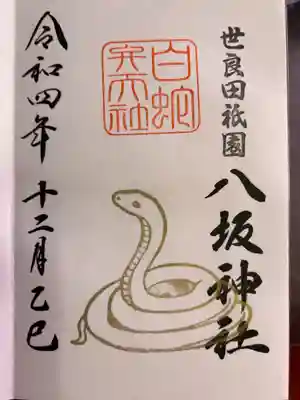 世良田祇園
八坂神社
白蛇
弁天社
令和四年十二月乙巳